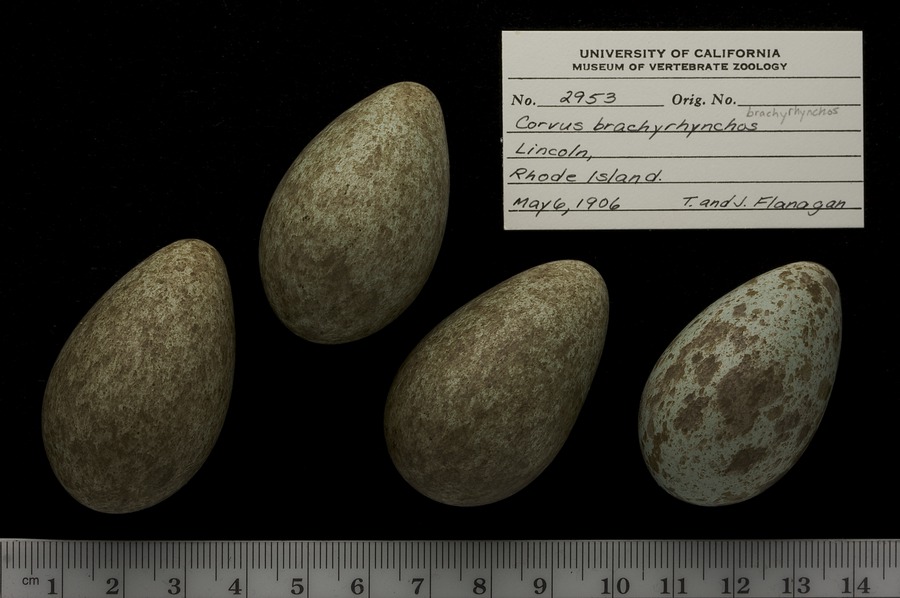 UNIVERSITY OF CALIFORNIA
MUSEUM OF VERTEBRATE ZOOLOGY
No. 2953 Orig. No.
brachyrhynchos
Corvus brachyrhynchos
Lincoln,
Rhode Island.
May 6, 1906 T. and J. Flanagan
cm 1 2 3 4 5 6 7 8 9 10 11 12 13 14